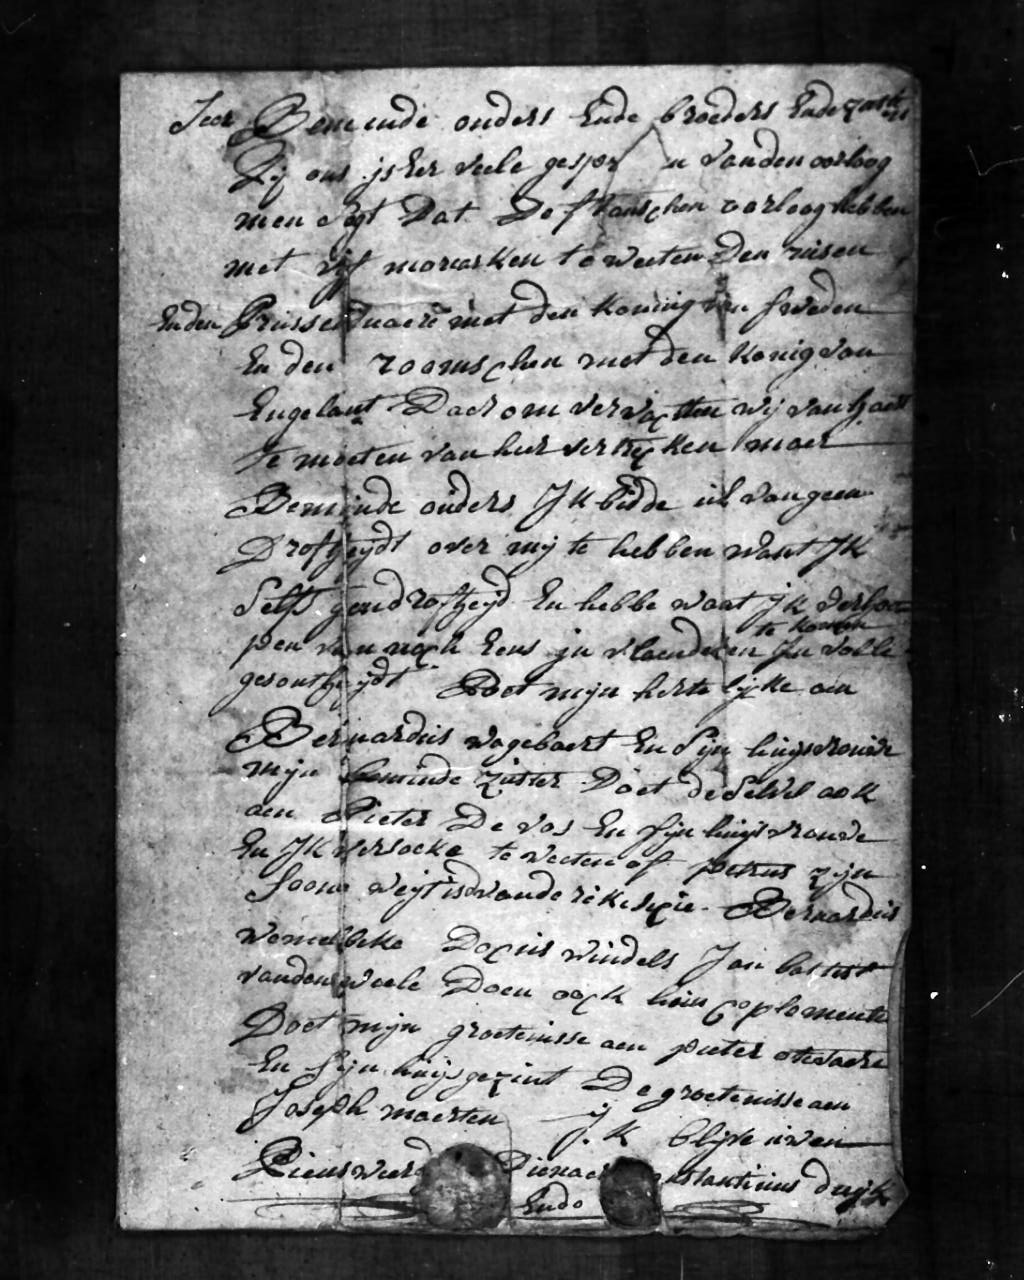 Seer Beminde ouders Ende broeders Ende zusters
Bij ons js Er veele gespor n vanden oorloog
men segt Dat De franschen oorloog hebben
met vijf monarken te weeten Den rusen
Enden Pruisse met den koning van sweden
En den roomschen met den konig van
Engelant Daerom verwachtten wij van
te moeten van hier vertrecken maer
Beminde ouders JK bidde ul van geen
Drofheijdt over mij te hebben want JK
Selfs geen drofheijd En hebbe want JK verhoo
pen van noch Eens jn vlaenderen te komen Jn volle
gesontheijdt Doet mijn hertelijke aen
Bernardus wagebaert En Sijn huijsvrouwe
mijn beminde zuster Doet deSelve ook
aen Pieter De vos En sijn huijsvrouwe
En JK versoeke te weeten of petrus zijn
Soone vande
Bernardus
wemelbeke windels Jan batist
vanden weele Doen oock hun coplomente
Doet mijn groetenisse aen pieter
En Sijn huijsgezint De groetenisse aen
Joseph maerten JK blijve uwen
Dienaer
Ende